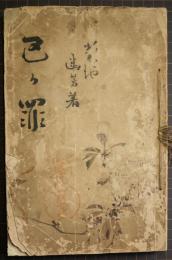 己が罪
菊池
幽芳著